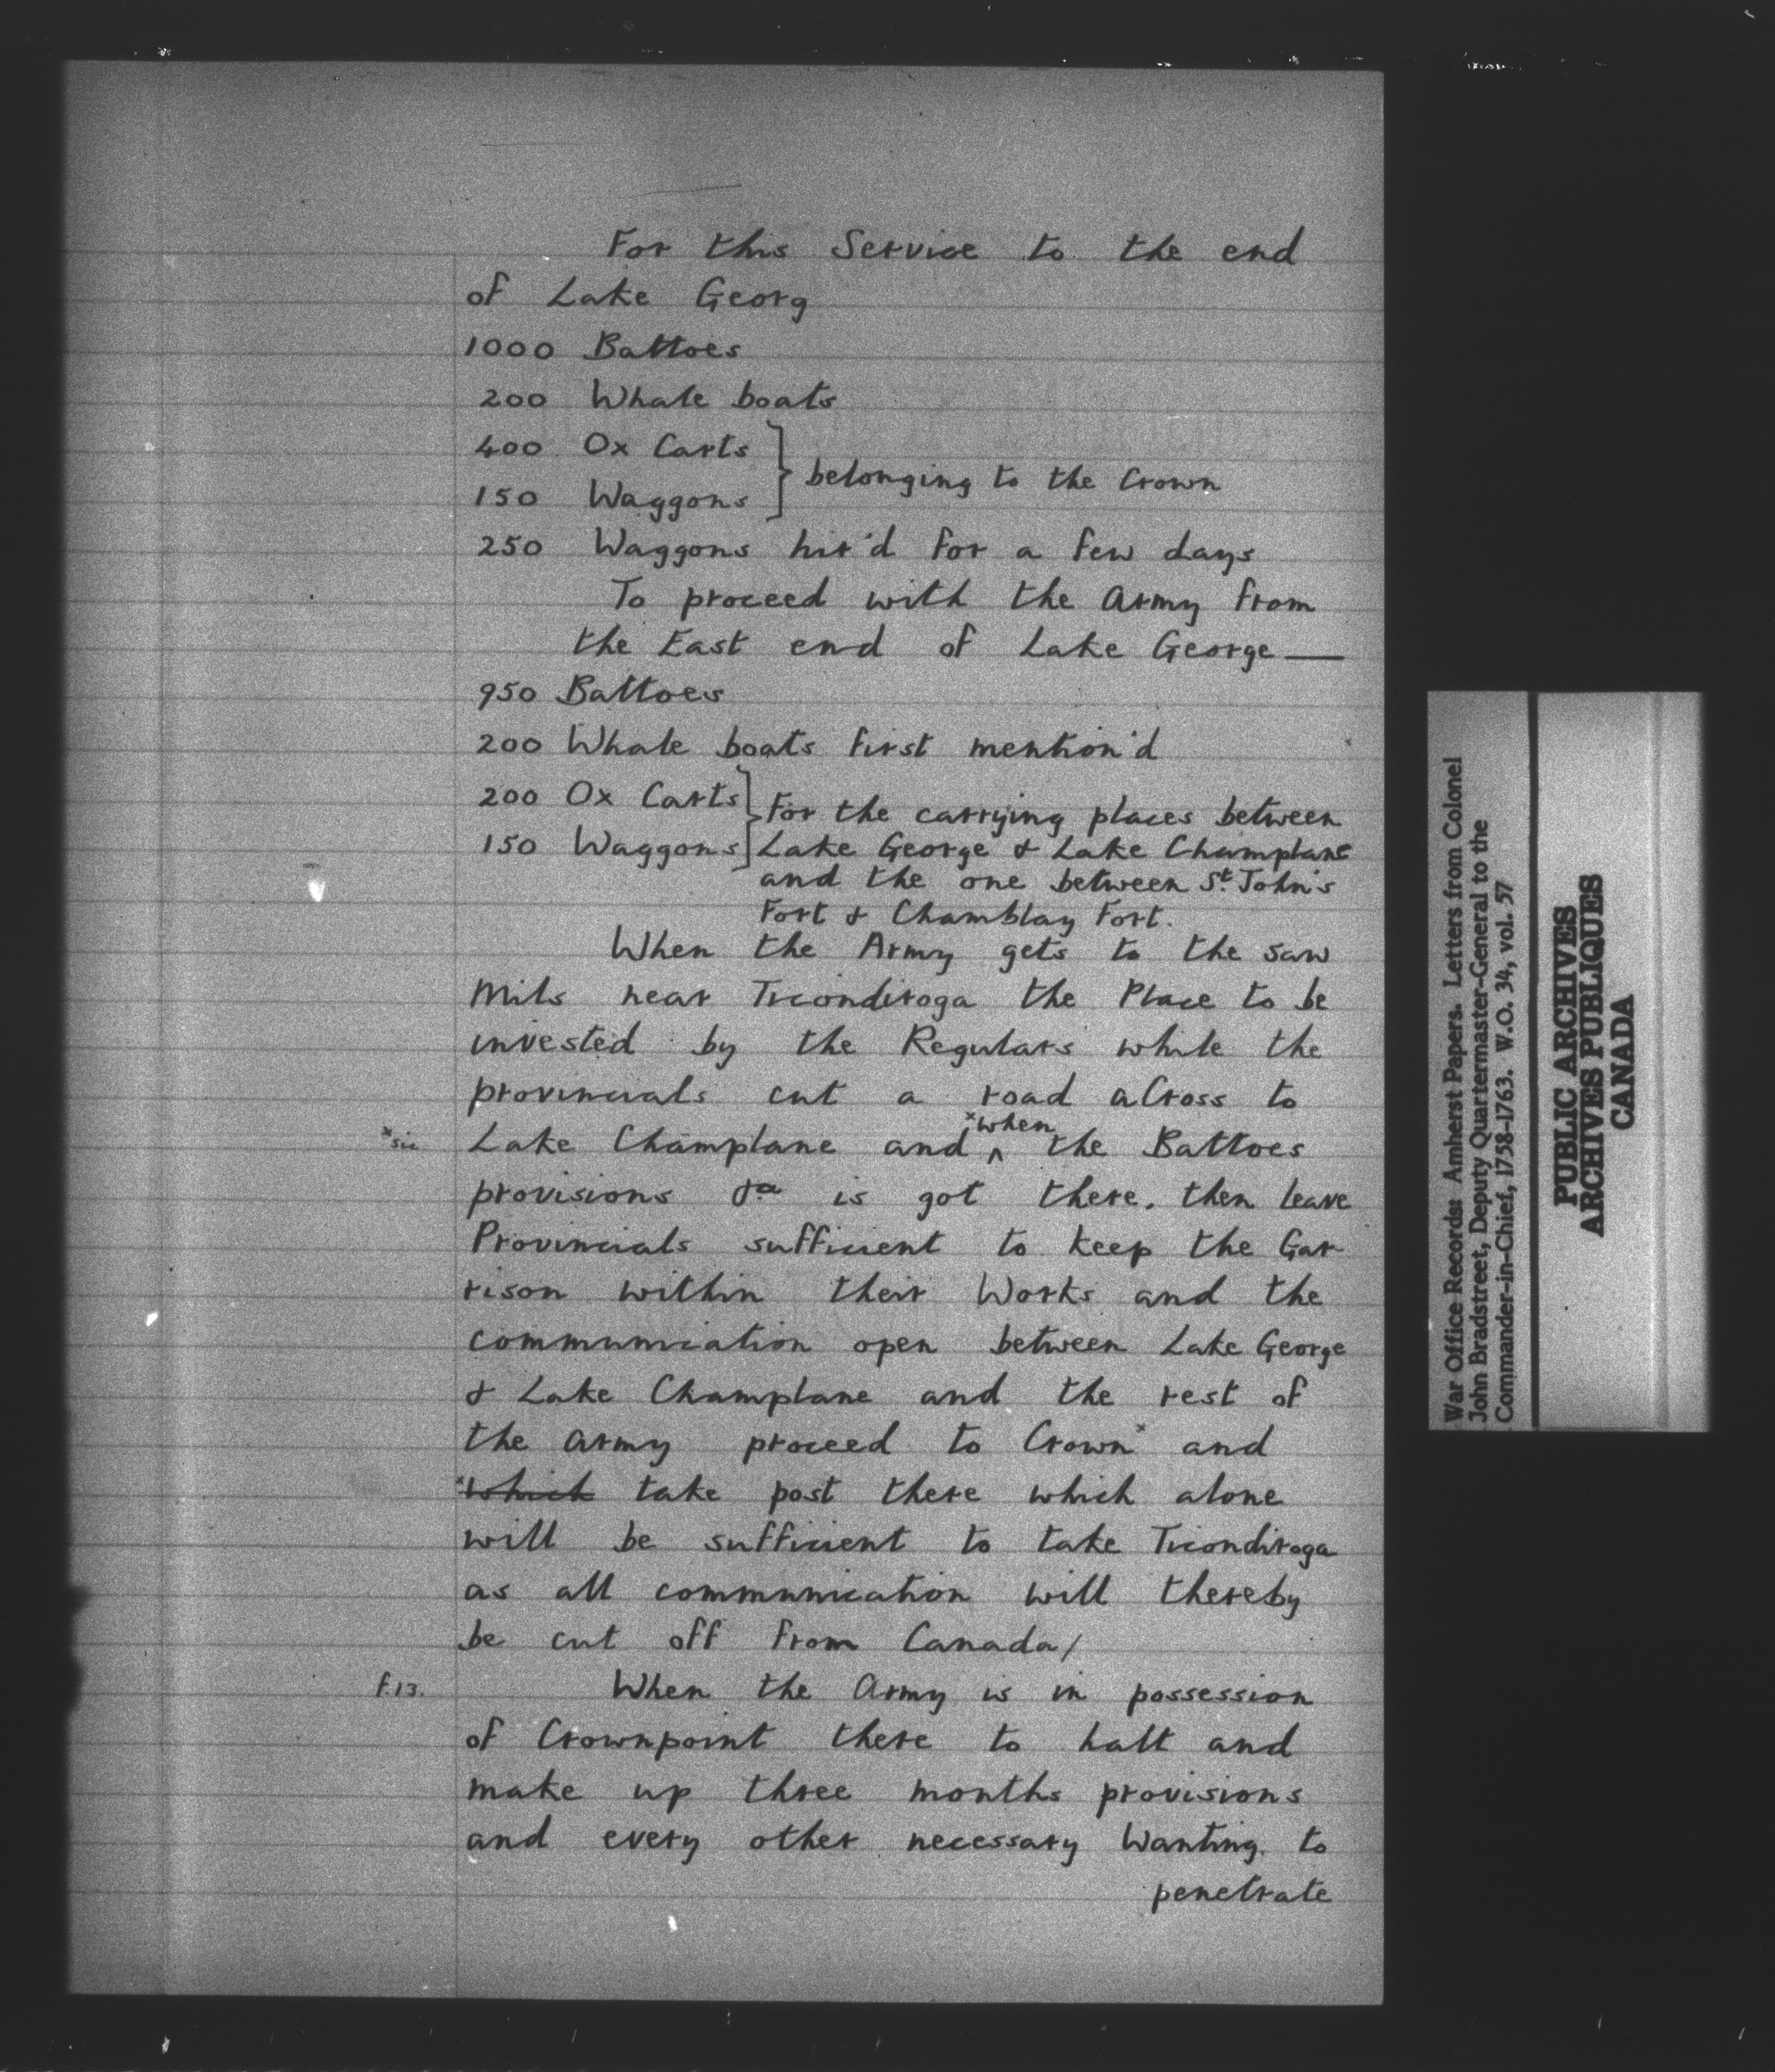 For this Service to the end
of Lake Georg
1000 Battoes
200 Whale boats
400 Ox Carts
150 Waggons } belonging to the Crown
250 Waggons hir'd for a few days
To proceed with the Army from
the East end of Lake George—
950 Battoes
200 Whale boats first mention'd
200 Ox Carts
150 Waggons } For the carrying places between
Lake George & Lake Champlane
and the one between St. John's
Fort & Chamblay Fort.
When the Army gets to the saw
Mils near Ticonditoga the Place to be
invested by the Regulars while the
provincials cut a road aCross to
*sic Lake Champlane and ^ *when the Battoes
provisions &a is got there. then leave
Provincials sufficient to keep the Gar-
rison within their Works and the
communication open between Lake George
& Lake Champlane and the rest of
the army proceed to Crown* and
*which take post there which alone
will be sufficient to take Ticonditoga
as all communication will thereby
be cut off from Canada/
f.13. When the Army is in possession
of Crownpoint there to halt and
make up three months provisions
and every other necessary Wanting to
penetrate
War Office Records: Amherst Papers. Letters from Colonel
John Bradstreet, Deputy Quartermaster-General to the
Commander-in-Chief, 1758-1763. W.O. 34, vol. 57
PUBLIC ARCHIVES
ARCHIVES PUBLIQUES
CANADA